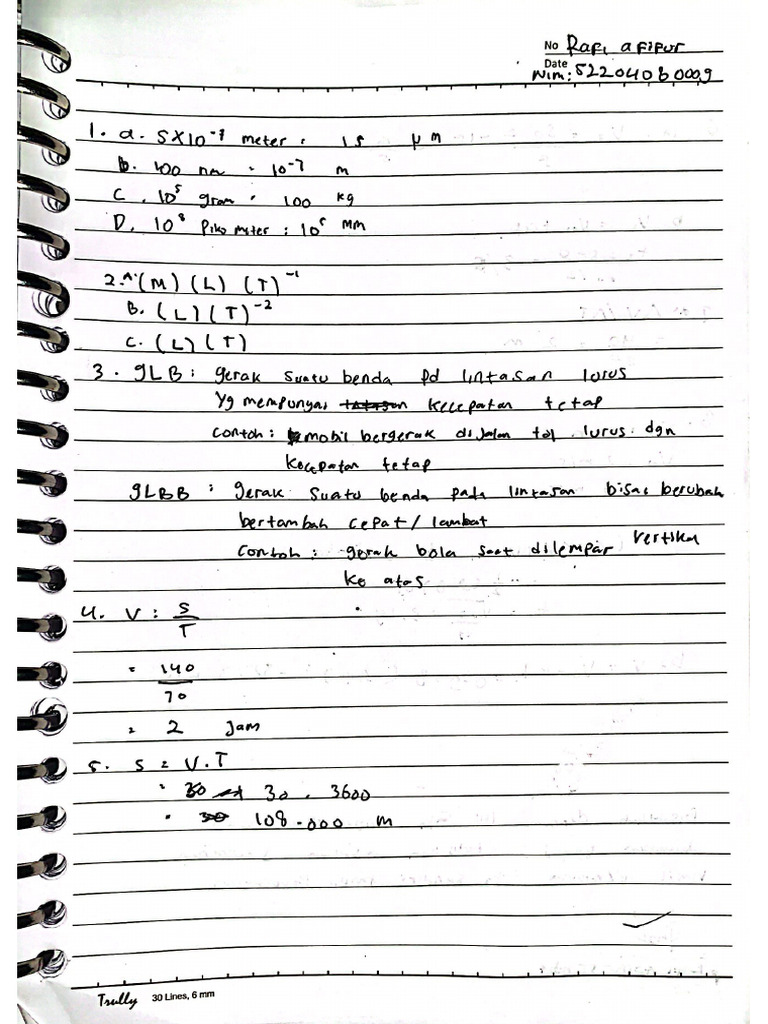 No Rafi afifur
Date
Nim: 52204080009
1. a. 5x10⁻⁷ meter = 15 µm
b. 100 nm = 10⁻⁷ m
C. 10⁵ gram = 100 kg
D. 10⁸ Piko meter : 10⁵ MM
2. A. (M) (L) (T)⁻¹
B. (L) (T)⁻²
C. (L) (T)
3. GLB : gerak suatu benda pd lintasan lurus
Yg mempunyai kecepatan tetap
contoh : mobil bergerak di jalan tol lurus dgn
kecepatan tetap
GLBB : gerak suatu benda pada lintasan bisa berubah
bertambah cepat / lambat
contoh : gerak bola saat dilempar vertikal
ke atas
4. V : S
T
= 140
70
= 2 Jam
5. S = V.T
= 30 . 3600
= 108.000 M
Trully 30 Lines, 6 mm